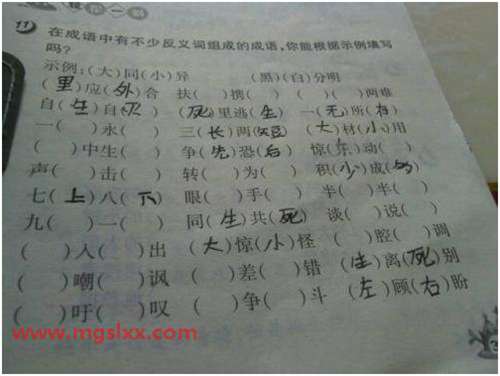 11 在成语中有不少反义词组成的成语,你能根据示例填写
吗?
示例:(大)同(小)异 (黑)(白)分明
(里)应(外)合 扶( )携( ) ( )( )两难
自(生)自(灭) (死)里逃(生) 一(无)所(有)
一( )永( ) 三(长)两(短) (大)材(小)用
( )中生( ) 争(先)恐(后) 惊(东)动( )
声( )击( ) 转( )为( ) 积(小)成(多)
七(上)八(下) 眼( )手( ) 半( )半( )
九( )一( ) 同(生)共(死) 谈( )说( )
( )入( )出 (大)惊(小)怪 ( )腔( )调
( )嘲( )讽 ( )差( )错 (生)离(死)别
( )吁( )叹 ( )争( )斗 (左)顾(右)盼
www.mgslxx.com